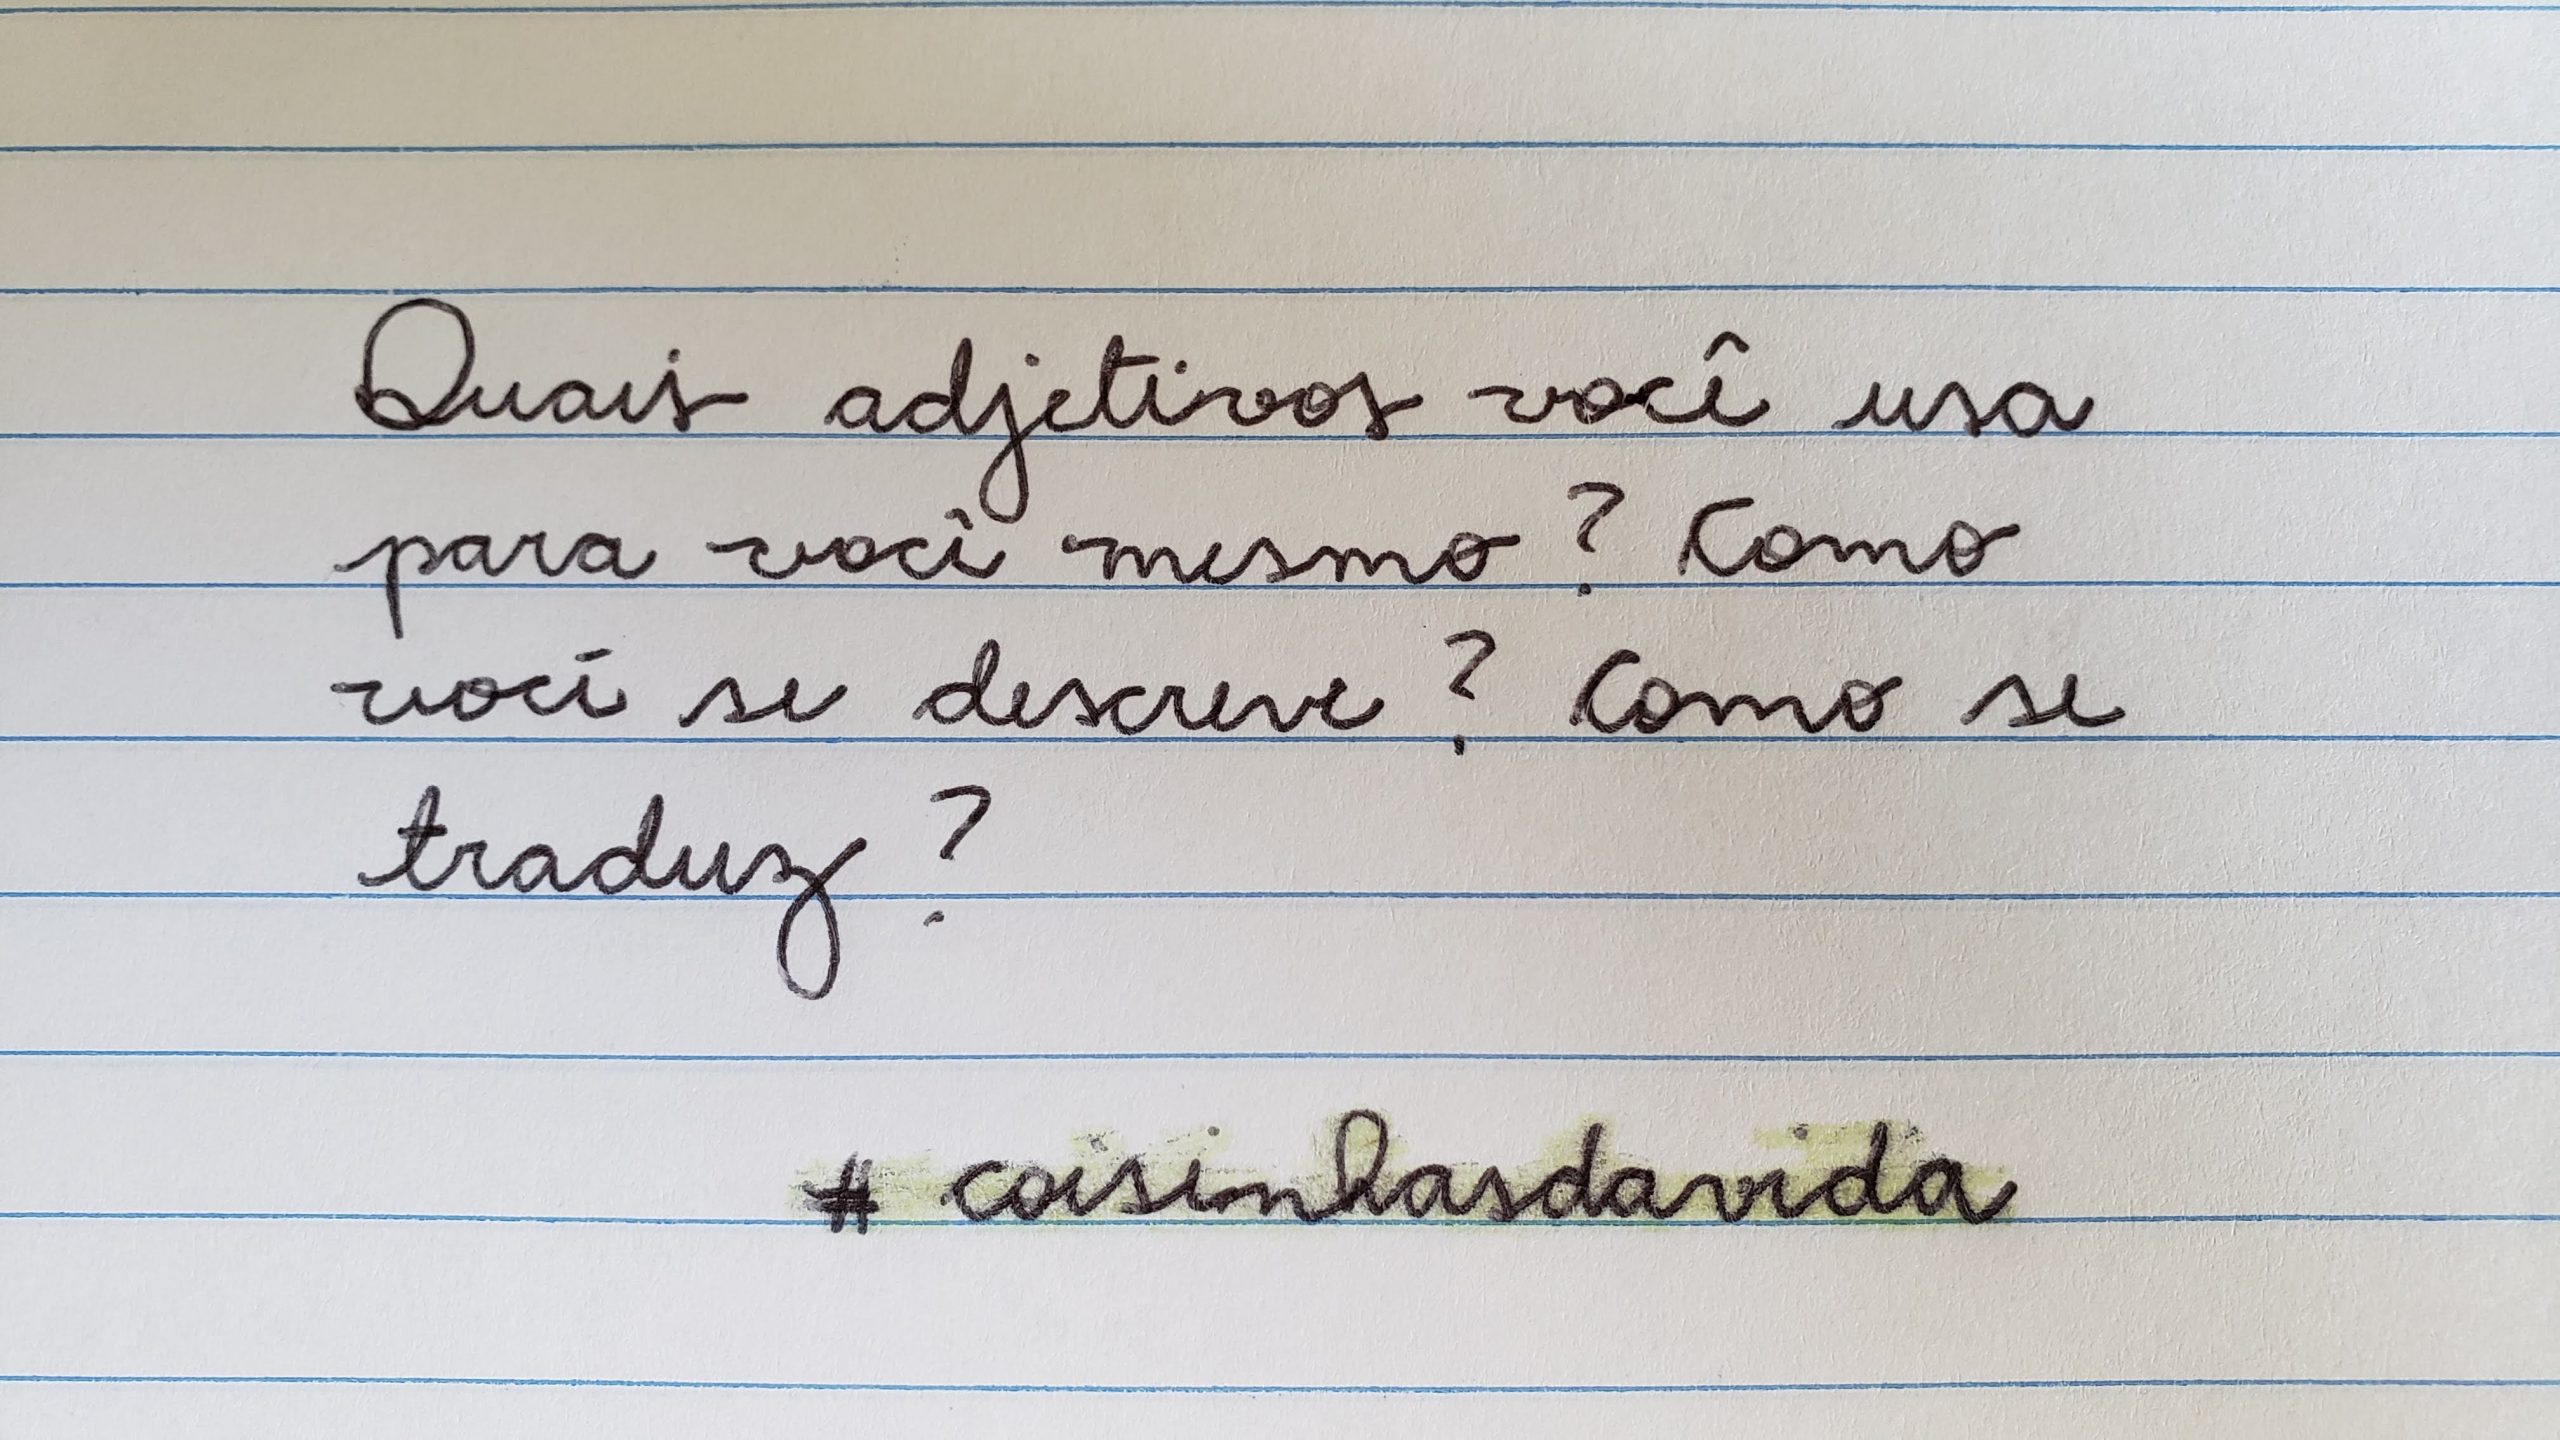 Quais adjetivos você usa
para você mesmo? Como
você se descreve? Como se
traduz?
# coisinhasdavida